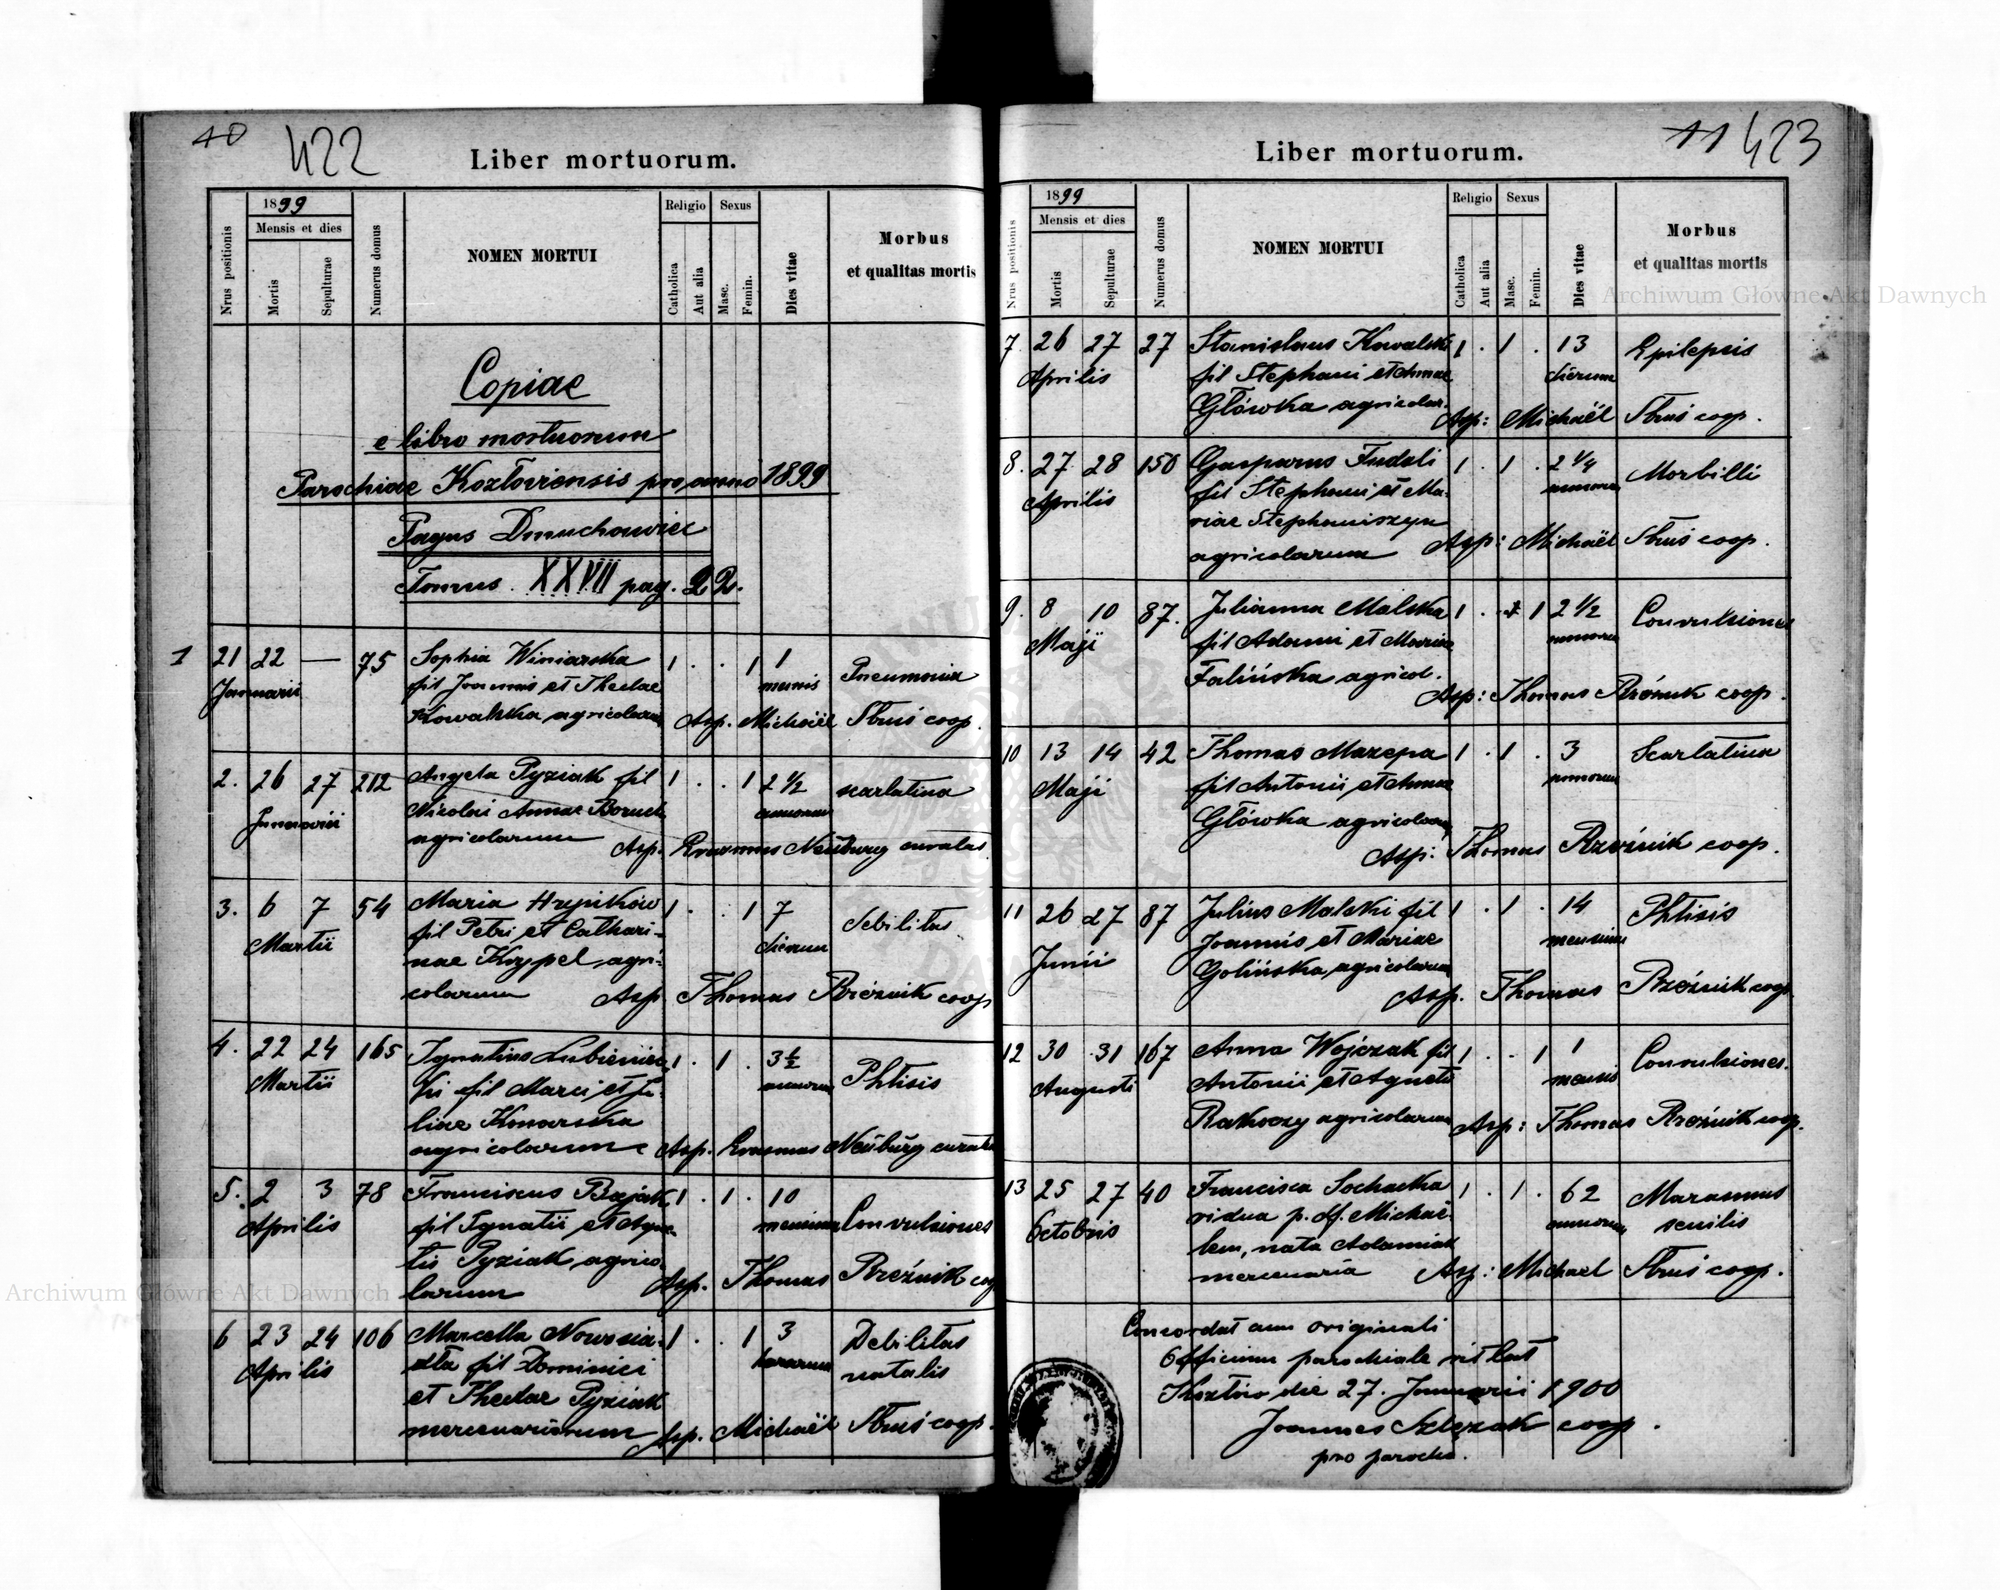 10 422
Liber mortuorum.
Nrus positionis
1899
Mensis et dies
Mortis
Sepulturae
Numerus domus
NOMEN MORTUI
Religio
Catholica
Aut alia
Sexus
Masc.
Femin.
Dies vitae
Morbus
et qualitas mortis
Copiae
e libro mortuorum
Parochiae Kozłoviensis pro anno 1899
Pagus Dmuchawiec
Tomus XXVII pag. 22.
1 21 22 — 75 Sophia Winiarska 1 . . 1 1 Pneumonia
Januarii fil Joannis et Theclae mensis
Kowalska agricolarum Asp. Michaël coop.
2. 26 27 212 Angela Pyziak fil 1 . . 1 2 1/2 scarlatina
Januarii Nicolai Annae annorum
agricolarum Asp. Erasmus Neüburg curatus
3. 6 7 54 Maria Hryńków 1 . . 1 7 debilitas
Martii fil Petri et Cathari- dierum
nae Krypel agri-
colarum Asp. Thomas Rzeźnik coop
4. 22 24 165 Ignatius Lubieniec- 1 . 1 . 3 1/2 Phtisis
Martii ki fil Marci et Ju- annorum
liae Konarska
agricolarum Asp. Erasmus Neüburg curatus
5. 2 3 78 Franciscus Bajak 1 . 1 . 10 Convulsiones
Aprilis fil Ignatii et Agne- mensium
tis Pyziak agrico-
larum Asp. Thomas Rzeźnik coop
6 23 24 106 Marcella Nowosia- 1 . . 1 3 Debilitas
Aprilis dła fil Dominici horarum natalis
et Theclae Pyziak
mercenariorum Asp. Michaël coop.
11 423
Liber mortuorum.
Nrus positionis
1899
Mensis et dies
Mortis
Sepulturae
Numerus domus
NOMEN MORTUI
Religio
Catholica
Aut alia
Sexus
Masc.
Femin.
Dies vitae
Morbus
et qualitas mortis
7. 26 27 27 Stanislaus Kowalski 1 . 1 . 13 Epilepsis
Aprilis fil Stephani et Annae dierum
Główka agricolar. Asp: Michaël coop.
8. 27 28 150 Gasparus Fudali 1 . 1 . 2 1/4 Morbilli
Aprilis fil Stephani et Ma- annorum
riae Stephaniszyn
agricolarum Asp: Michaël coop.
9. 8 10 87. Julianna Malska 1 . . 1 2 1/2 Convulsiones
Maji fil Adami et Mariae annorum
Falińska agricol. Asp: Thomas Rzeźnik coop.
10 13 14 42 Thomas Mazepa 1 . 1 . 3 Scarlatina
Maji fil Antonii et Annae annorum
Główka agricolarum
Asp: Thomas Rzeźnik coop.
11 26 27 87 Julius Malski fil 1 . 1 . 14 Phtisis
Junii Joannis et Mariae mensium
Golińska agricolarum
Asp. Thomas Rzeźnik coop.
12 30 31 167 Anna Wojczak fil 1 . . 1 1 Convulsiones.
Augusti Antonii et Agnetis mensis
Rakoczy agricolarum Asp: Thomas Rzeźnik coop.
13 25 27 40 Francisca Sochacka 1 . 1 . 62 Marasmus
Octobris vidua p. df. Michaë- annorum senilis
lem, nata Adamiak
mercenaria Asp: Michael coop.
Concordat cum originali
Officium parochiale rit lat
Kozłów die 27. Januarii 1900
Joannes Szlęzak coop.
pro parocho.
Archiwum Główne Akt Dawnych
Archiwum Główne Akt Dawnych